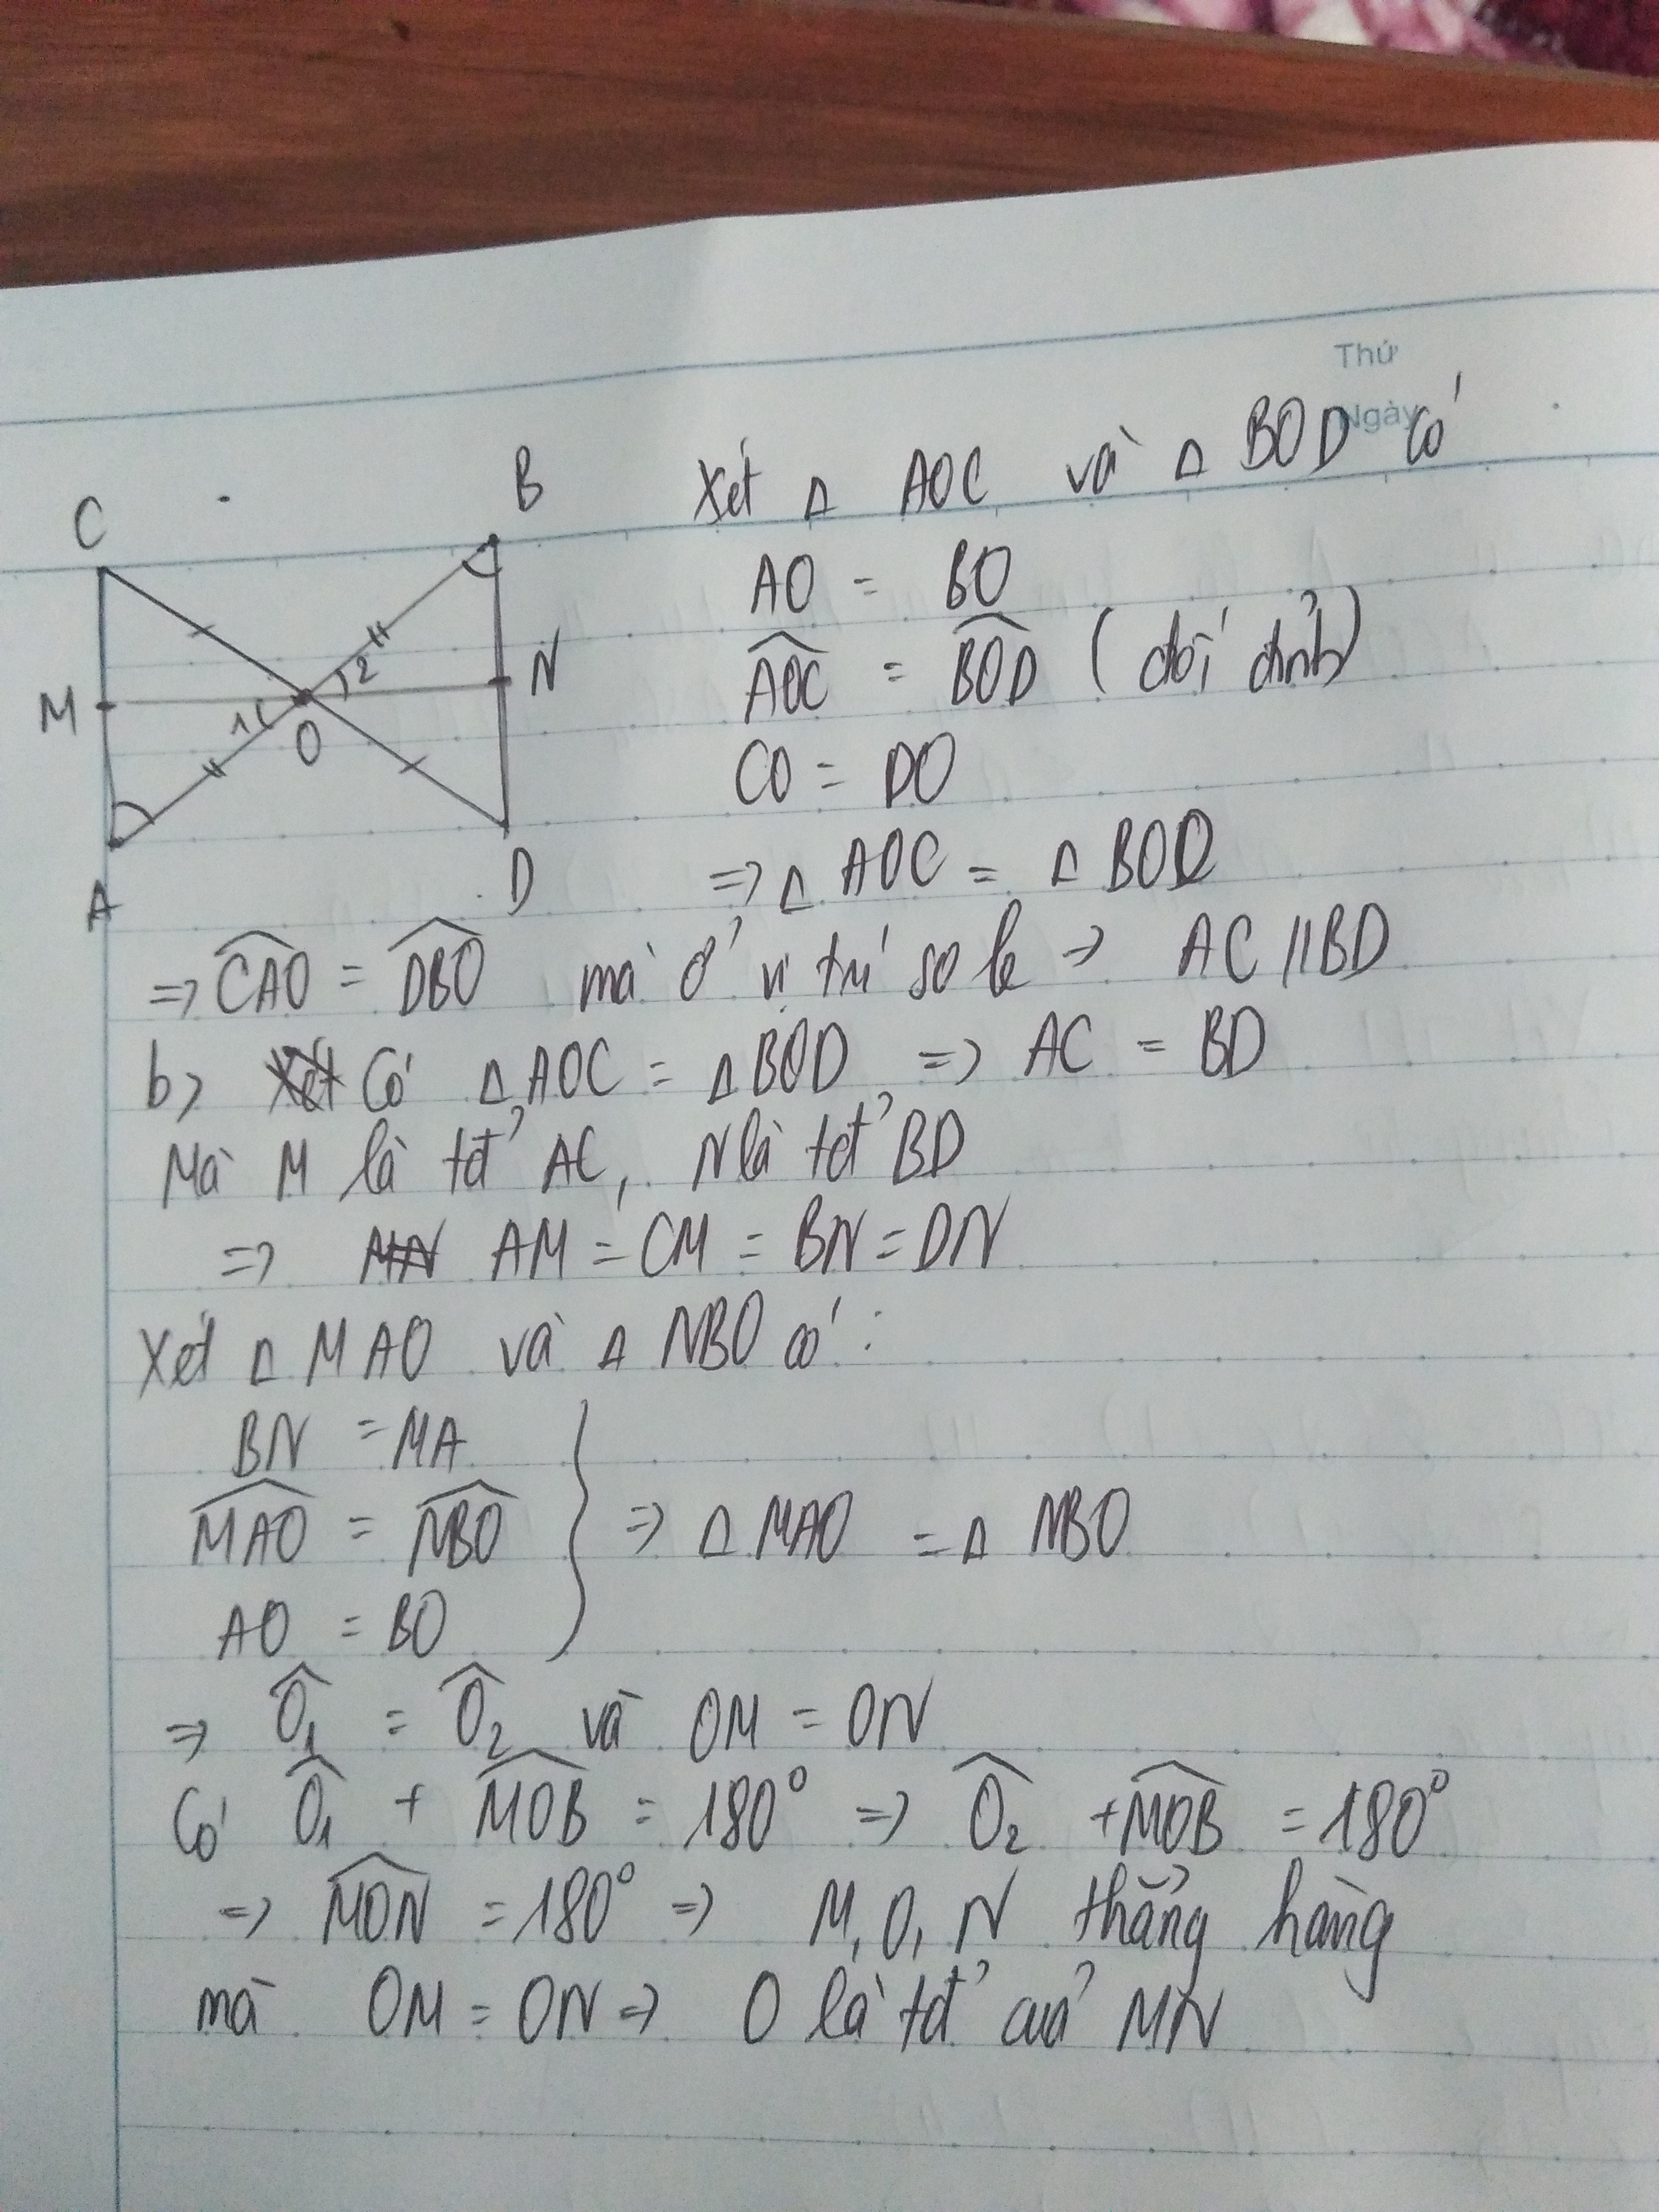 Thứ
Ngày
C
B
M
N
1
2
O
A
D
Xét Δ AOC và Δ BOD có
AO = BO
AOC = BOD (đối đỉnh)
CO = DO
=> Δ AOC = Δ BOD
=> CAO = DBO mà ở vị trí so le => AC // BD
b, Xét Có Δ AOC = Δ BOD => AC = BD
Mà M là tđ AC, N là tđ BD
=> MN AM = CM = BN = DN
Xét Δ MAO và Δ NBO có :
BN = MA
MAO = NBO => Δ MAO = Δ NBO
AO = BO
=> O1 = O2 và OM = ON
Có O1 + MOB = 180° => O2 + MOB = 180°
=> MON = 180° => M, O, N thẳng hàng
mà OM = ON => O là tđ của MN